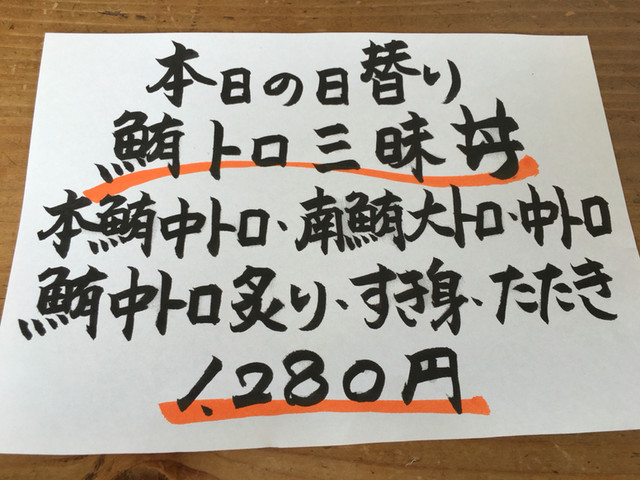 本日の日替り
鮪トロ三昧丼
本鮪中トロ、南鮪大トロ・中トロ
鮪中トロ炙り、すき身、たたき
1,280円